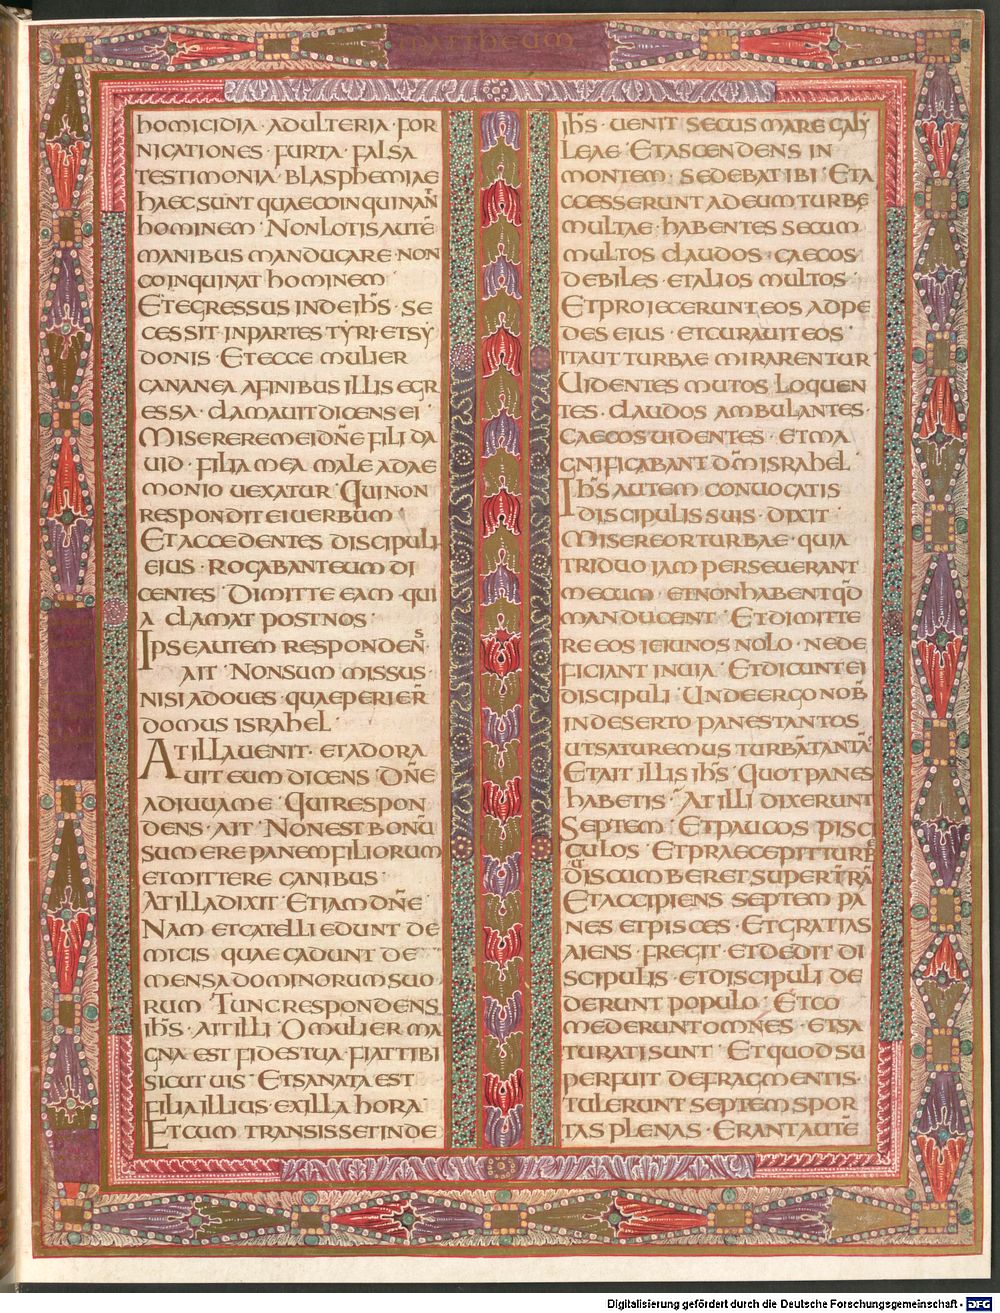 MATTHEUM
HOMICIDIA · ADULTERIA · FOR
NICATIONES · FURTA · FALSA
TESTIMONIA · BLASPHEMIAE
HAEC SUNT QUAE COINQUINAN̄T
HOMINEM · NON LOTIS AUTĒ
MANIBUS MANDUCARE · NON
COINQUINAT HOMINEM ·
ET EGRESSUS INDE IH̄S · SE
CESSIT · IN PARTES TYRI · ET SY
DONIS · ET ECCE MULIER
CANANEA A FINIBUS ILLIS EGR
ESSA · CLAMAUIT DICENS EI ·
MISERERE MEI DN̄E FILI DA
UID · FILIA MEA MALE A DAE
MONIO UEXATUR · QUI NON
RESPONDIT EI UERBUM ·
ET ACCEDENTES DISCIPULI
EIUS · ROGABANT EUM DI
CENTES · DIMITTE EAM · QUI
A CLAMAT POST NOS ·
IPSE AUTEM RESPONDENS ·
AIT · NON SUM MISSUS ·
NISI AD OUES · QUAE PERIER̄
DOMUS ISRAHEL ·
AT ILLA UENIT · ET ADORA
UIT EUM DICENS · DN̄E
ADIUUA ME · QUI RESPON
DENS · AIT · NON EST BONŪ
SUMERE PANEM FILIORUM
ET MITTERE CANIBUS ·
AT ILLA DIXIT · ETIAM DN̄E ·
NAM ET CATELLI EDUNT DE
MICIS QUAE CADUNT DE
MENSA DOMINORUM SUO
RUM · TUNC RESPONDENS
IH̄S · AIT ILLI · O MULIER MA
GNA EST FIDES TUA · FIAT TIBI
SICUT UIS · ET SANATA EST
FILIA ILLIUS · EX ILLA HORA ·
ET CUM TRANSISSET INDE
IH̄S · UENIT SECUS MARE GALY
LEAE · ET ASCENDENS IN
MONTEM · SEDEBAT IBI · ET A
CCESSERUNT AD EUM TURBE
MULTAE · HABENTES SECUM
MULTOS CLAUDOS · CAECOS
DEBILES · ET ALIOS MULTOS ·
ET PROIECERUNT EOS AD PE
DES EIUS · ET CURAUIT EOS ·
ITA UT TURBAE MIRARENTUR ·
UIDENTES MUTOS LOQUEN
TES · CLAUDOS AMBULANTES ·
CAECOS UIDENTES · ET MA
GNIFICABANT DM̄ ISRAHEL ·
IH̄S AUTEM CONUOCATIS
DISCIPULIS SUIS · DIXIT ·
MISEREOR TURBAE · QUIA
TRIDUO IAM PERSEUERANT
MECUM · ET NON HABENT QD̄
MANDUCENT · ET DIMITTE
RE EOS IEIUNOS NOLO · NE DE
FICIANT IN UIA · ET DICUNT EI
DISCIPULI · UNDE ERGO NOB̄
IN DESERTO PANES TANTOS
UT SATUREMUS TURBĀ TANTĀ ·
ET AIT ILLIS IH̄S · QUOT PANES
HABETIS · AT ILLI DIXERUNT
SEPTEM · ET PAUCOS PISCI
CULOS · ET PRAECEPIT TURBE
UT DISCUMBERET SUPER TR̄Ā
ET ACCIPIENS SEPTEM PA
NES ET PISCES · ET GRATIAS
AIENS FREGIT · ET DEDIT DI
SCIPULIS · ET DISCIPULI DE
DERUNT POPULO · ET CO
MEDERUNT OMNES · ET SA
TURATI SUNT · ET QUOD SU
PERFUIT DE FRAGMENTIS ·
TULERUNT SEPTEM SPOR
TAS PLENAS · ERANT AUTĒ
Digitalisierung gefördert durch die Deutsche Forschungsgemeinschaft - DFG